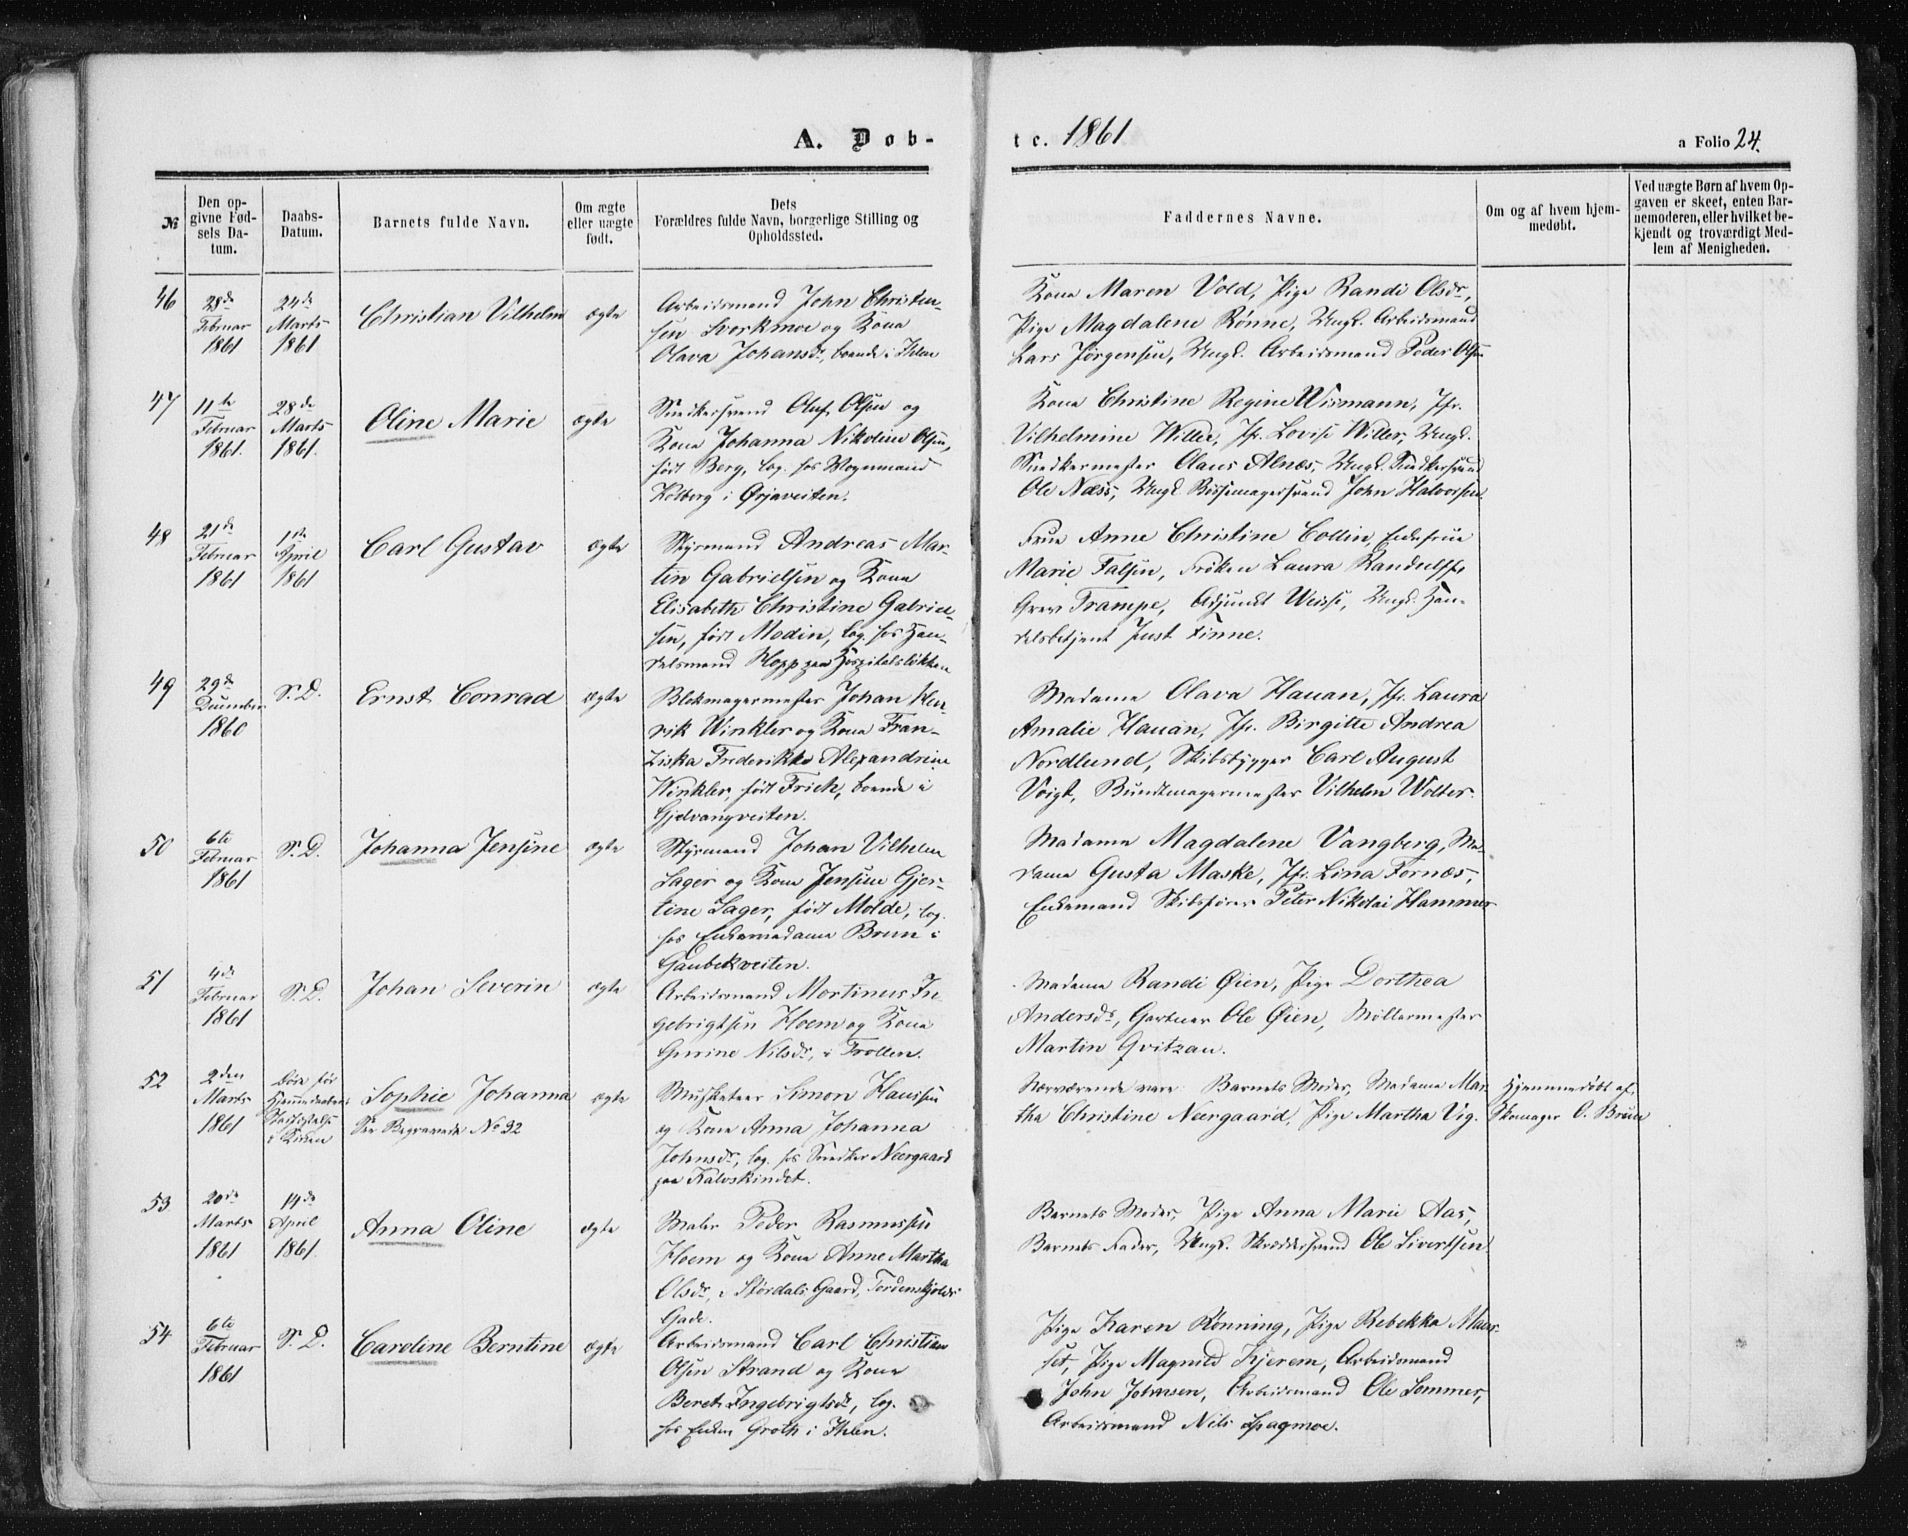 A. Døb-
te. 1861
a Folio 24.
№
Den op-
givne Fød-
sels Da-
tum.
Daabs-
Datum.
Barnets fulde Navn.
Om ægte
eller uægte
født.
Dets
Forældres fulde Navn, borgerlige Stilling og
Opholdssted.
Faddernes Navne.
Om og af hvem hjem-
medøbt.
Ved uægte Børn af hvem Op-
gaven er skeet, enten Bar-
nemoderen, eller hvilket be-
kjendt og troværdigt Med-
lem af Menigheden.
46
28de
Februar
1861
24de
Marts
1861
Christian Vilhelm
ægte
Arbeidsmand John Christen-
sen Svorkmoe og Kona
Olava Johansdr, boende i Ihlen
Kona Maren Vold, Pige Randi Olsdr,
Pige Magdalene Rønne, Ungk. Arbeidsmand
Lars Jørgensen, Ungk. Arbeidsmand Peder Olsen
47
11te
Februar
1861.
28de
Marts
1861.
Oline Marie
ægte
Snedkersvend Oluf Olsen og
Kona Johanna Nikoline Olsen,
født Berg, log. hos Vognmand
Kolberg i Ørjaveiten.
Kona Christine Regine Wismann, Jfr.
Vilhelmine Willer, Jfr. Lovise Willer, Ungk.
Snedkermester Olaus Alnæs, Ungk. Snedkersvend
Ole Næss, Ungk. Bøssemagersvend John Halvorsen
48
21de
Februar
1861
1ste
April
1861
Carl Gustav
ægte
Styrmand Andreas Mar-
tin Gabrielsen og Kona
Elisabeth Christine Gabriel-
sen, født Modin, log. hos Han-
delsmand Hopp paa Hospitalsløkken
Frue Anne Christine Collin, Enkefrue
Marie Falsen, Frøken Laura Randulff,
Grev Trampe, Adjunkt Weisse, Ungk. Han-
delsbetjent Just Finne.
49
29de
December
1860
S. D.
Ernst Conrad
ægte
Blokmagermester Johan Hen-
rik Winkler og Kona Fran-
ziska Frederikke Alexandrine
Winkler, født Frich, boende i
Gjelvangveiten.
Madame Olava Hauan, Jfr. Laura
Amalie Hauan, Jfr. Birgitte Andrea
Nordlund, Skibsbygger Carl August
Voigt, Bundtmagermester Vilhelm Wolter.
50
6te
Februar
1861
S. D.
Johanna Jensine
ægte
Styrmand Johan Vilhelm
Sager og Kona Jensine Gjer-
tine Sager, født Molde, log.
hos Enkemadame Brun i
Gaubekveiten.
Madame Magdalene Vangberg, Ma-
dame Gusta Maske, Jfr. Lina Fornæs,
Enkemand Skibsfører Peter Nikolai Hammer
51
4de
Februar
1861
S. D.
Johan Severin
ægte
Arbeidsmand Mortinus In-
gebrigtsen Hoem og Kona
Gurine Nilsdr, i Trollen.
Madame Randi Øien, Pige Dorthea
Andersdr, Gartner Ole Øien, Møllermester
Martin Qvitzau.
52
2den
Marts
1861
Døde før
Hjemmedaaben
Stadfæstelse
i Kirken
Sophie Johanna
See Begravede No 32
ægte
Musketeer Simon Hansen
og Kona Anna Johanna
Johnsdr, log. hos Snedker Neergaard
paa Kalvskindet.
Nærværende vare Barnets Moder, Madame Mar-
tha Christine Neergaard, Pige Martha Vig.
Hjemmedøbt af
Skomager O. Bruun
53
20de
Marts
1861
14de
April
1861.
Anna Oline
ægte
Maler Peder Rasmussen
Hoem og Kona Anne Martha
Olsdr, i Størdals Gaard, Tordenskjolds
Gade.
Barnets Moder, Pige Anna Marie Aas,
Barnets Fader, Ungk. Skræddersvend Ole Sivertsen
54
6te
Februar
1861
S. D.
Caroline Berntine
ægte
Arbeidsmand Carl Christian
Olsen Strand og Kona
Beret Ingebrigtsdr, log.
hos Enken Groth i Ihlen.
Pige Karen Rønning, Pige Rebekka Maur-
set, Pige Magnild Kjerem, Arbeidsmand
John Johnsen, Arbeidsmand Ole Sommer,
Arbeidsmand Nils Spagmoe.